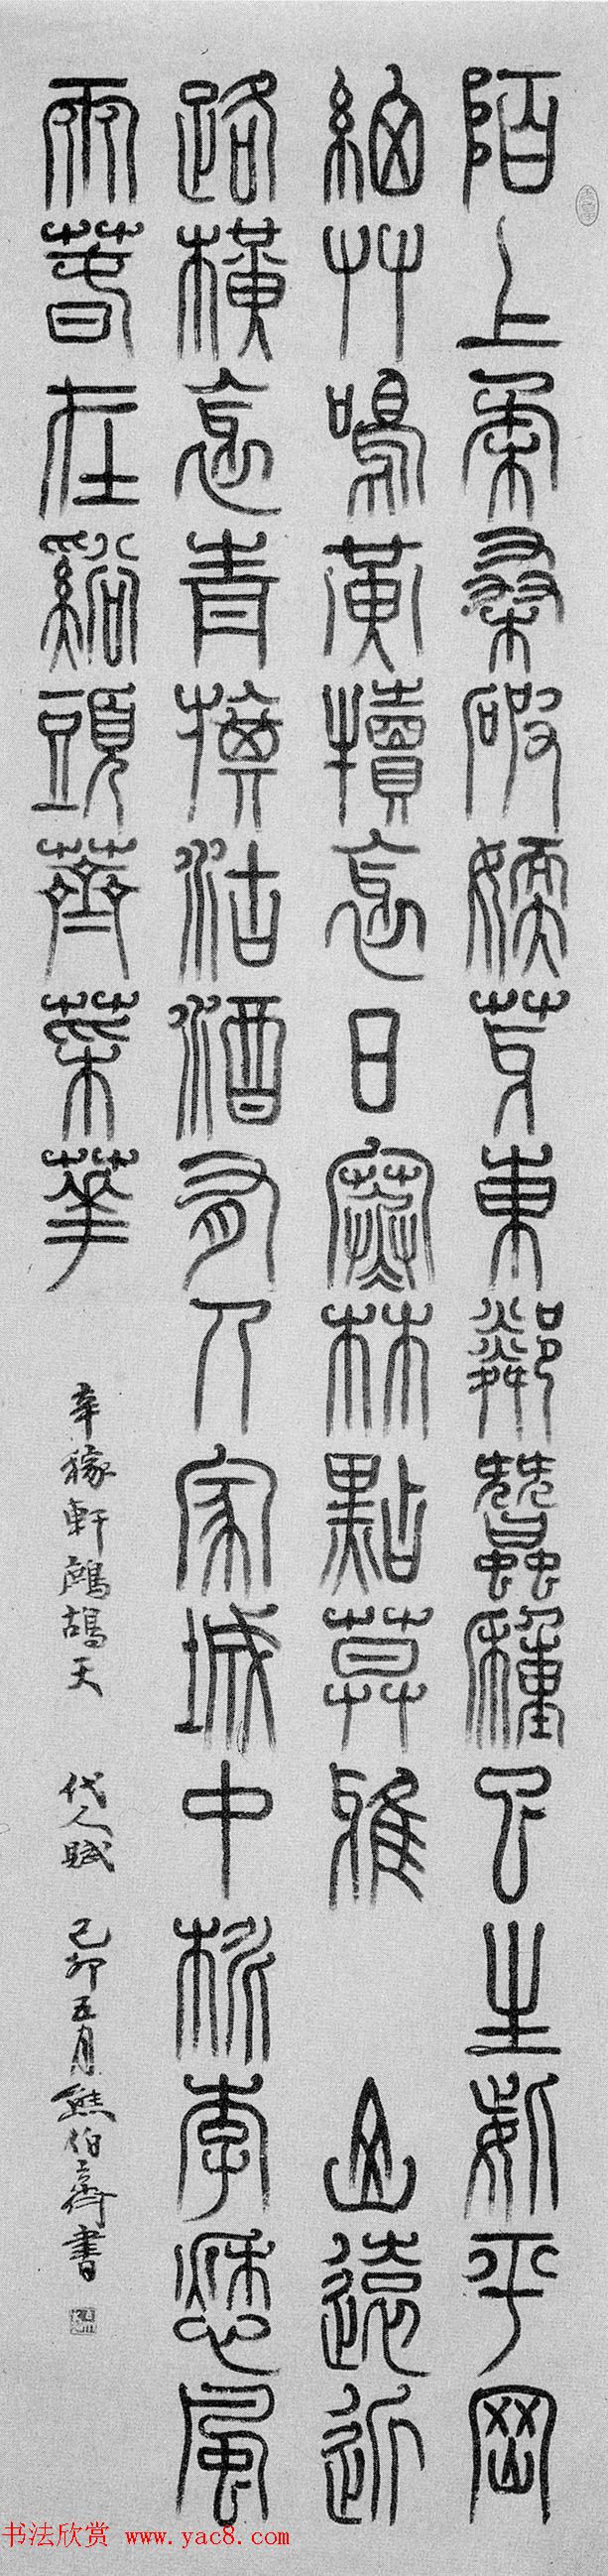 陌上柔桑破嫩芽東鄰蠶種已生些平岡
細艸鳴黃犢衺日寒林點莫雅 山遠近
路橫衺青旗沽酒有人家城中桃李愁風
雨萅在谿頭薺菜華
辛稼軒鷓鴣天 代人賦 己卯五月熊伯齊書
书法欣赏 www.yac8.com